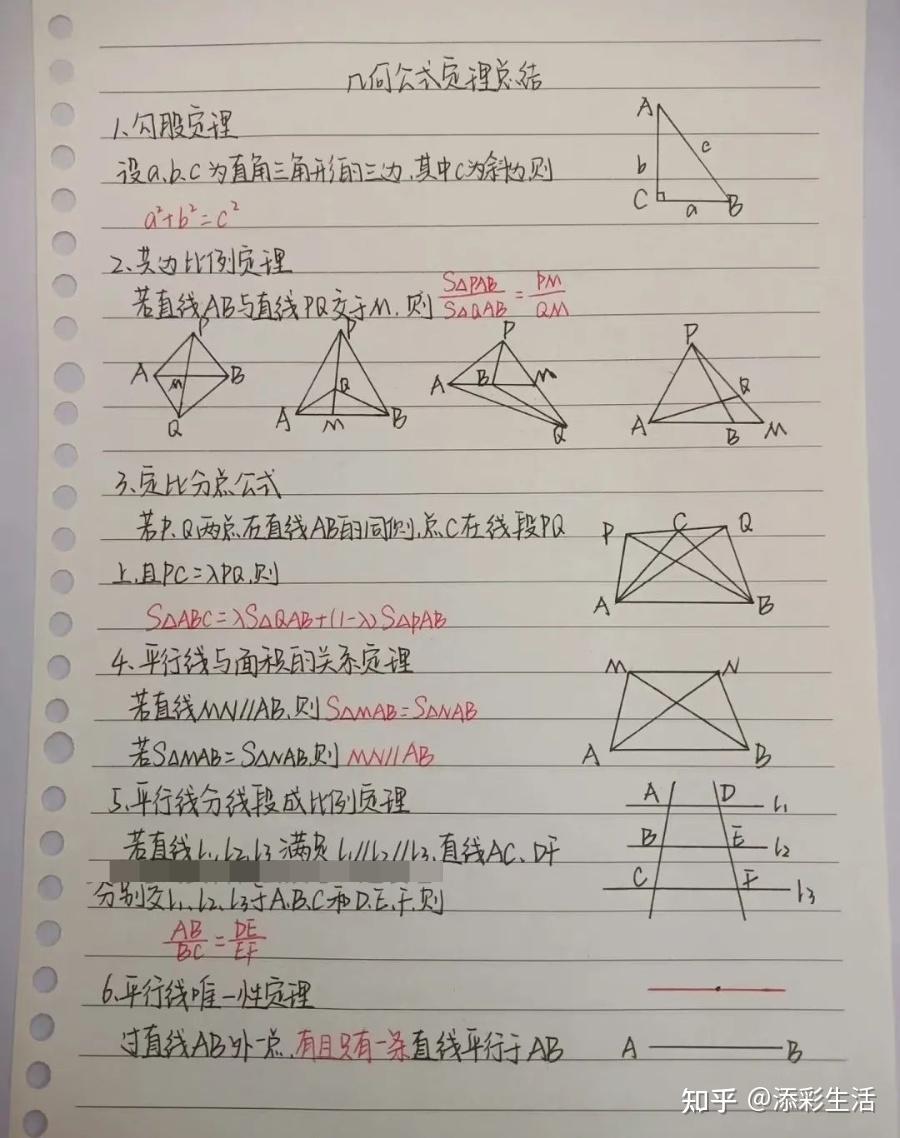 几何公式定理总结
1、勾股定理
设a、b、c为直角三角形的三边,其中c为斜边,则
a²+b²=c²
A
b
c
C
a
B
2、共边比例定理
若直线AB与直线PQ交于M,则 S△PAB/S△QAB = PM/QM
P
A
M
B
Q
P
Q
A
M
B
P
A
B
M
Q
P
Q
A
B
M
3、定比分点公式
若P、Q两点在直线AB的同侧,点C在线段PQ
上,且PC=λPQ,则
S△ABC=λS△QAB+(1-λ)S△PAB
P
C
Q
A
B
4、平行线与面积的关系定理
若直线MN//AB,则S△MAB=S△NAB
若S△MAB=S△NAB,则MN//AB
M
N
A
B
5、平行线分线段成比例定理
若直线l1、l2、l3满足l1//l2//l3,直线AC、DF
分别交l1、l2、l3于A、B、C和D、E、F,则
AB/BC = DE/EF
A
D
l1
B
E
l2
C
F
l3
6、平行线唯一性定理
过直线AB外一点,有且只有一条直线平行于AB
A
B
知乎 @添彩生活